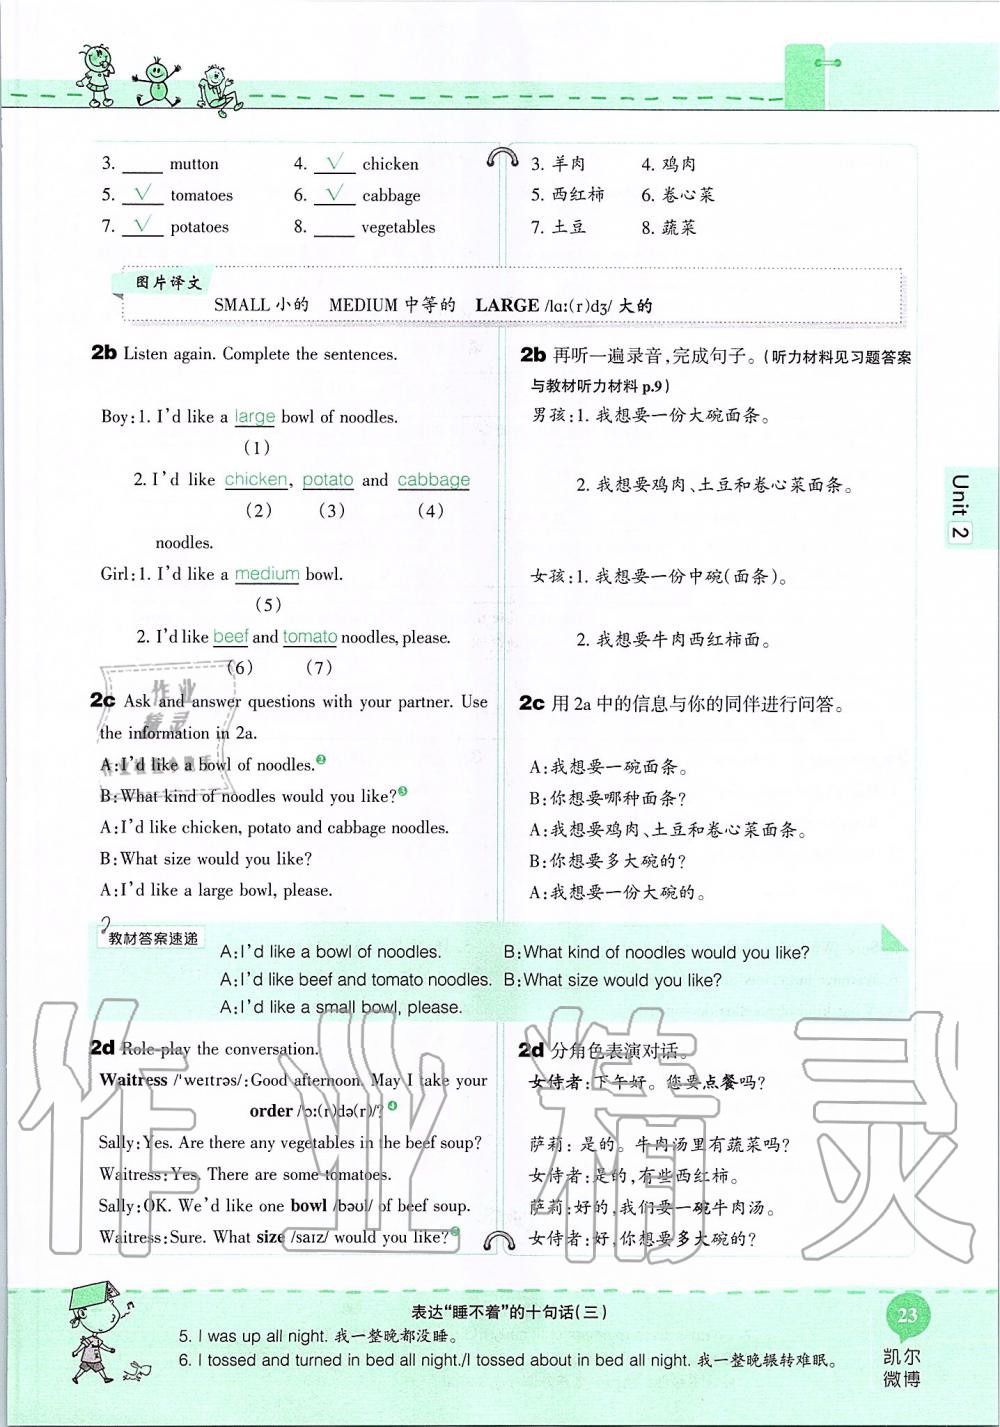 3. ____ mutton 4. √ chicken
5. √ tomatoes 6. √ cabbage
7. √ potatoes 8. ____ vegetables
3. 羊肉 4. 鸡肉
5. 西红柿 6. 卷心菜
7. 土豆 8. 蔬菜
图片译文
SMALL 小的 MEDIUM 中等的 LARGE /lɑː(r)dʒ/ 大的
2b Listen again. Complete the sentences.
Boy:1. I'd like a large bowl of noodles.
(1)
2. I'd like chicken, potato and cabbage
(2) (3) (4)
noodles.
Girl:1. I'd like a medium bowl.
(5)
2. I'd like beef and tomato noodles, please.
(6) (7)
2b 再听一遍录音,完成句子。(听力材料见习题答案
与教材听力材料 p.9)
男孩:1. 我想要一份大碗面条。
2. 我想要鸡肉、土豆和卷心菜面条。
女孩:1. 我想要一份中碗(面条)。
2. 我想要牛肉西红柿面。
2c Ask and answer questions with your partner. Use
the information in 2a.
A:I'd like a bowl of noodles.❷
B:What kind of noodles would you like?❸
A:I'd like chicken, potato and cabbage noodles.
B:What size would you like?
A:I'd like a large bowl, please.
2c 用 2a 中的信息与你的同伴进行问答。
A:我想要一碗面条。
B:你想要哪种面条?
A:我想要鸡肉、土豆和卷心菜面条。
B:你想要多大碗的?
A:我想要一份大碗的。
教材答案速递
A:I'd like a bowl of noodles. B:What kind of noodles would you like?
A:I'd like beef and tomato noodles. B:What size would you like?
A:I'd like a small bowl, please.
2d Role-play the conversation.
Waitress /ˈweɪtrəs/:Good afternoon. May I take your
order /ɔː(r)də(r)/?❹
Sally:Yes. Are there any vegetables in the beef soup?
Waitress:Yes. There are some tomatoes.
Sally:OK. We'd like one bowl /bəʊl/ of beef soup.
Waitress:Sure. What size /saɪz/ would you like?
2d 分角色表演对话。
女侍者:下午好。您要点餐吗?
萨莉:是的。牛肉汤里有蔬菜吗?
女侍者:是的,有些西红柿。
萨莉:好的,我们要一碗牛肉汤。
女侍者:好,你想要多大碗的?
Unit 2
表达“睡不着”的十句话(三)
5. I was up all night. 我一整晚都没睡。
6. I tossed and turned in bed all night./I tossed about in bed all night. 我一整晚辗转难眠。
23
凯尔
微博
作业精灵
作业
精灵